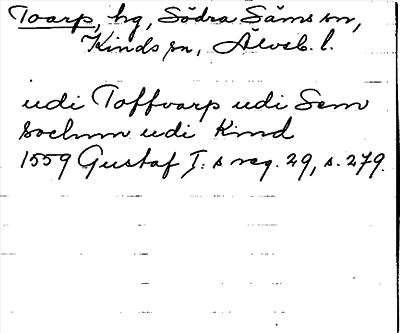 Toarp, hg, Södra Säms sn,
Kinds sn, Älvsb. l.
udi Toffvarp udi Sem
sochnn udi Kind
1559 Gustaf I:s reg. 29, s. 279.